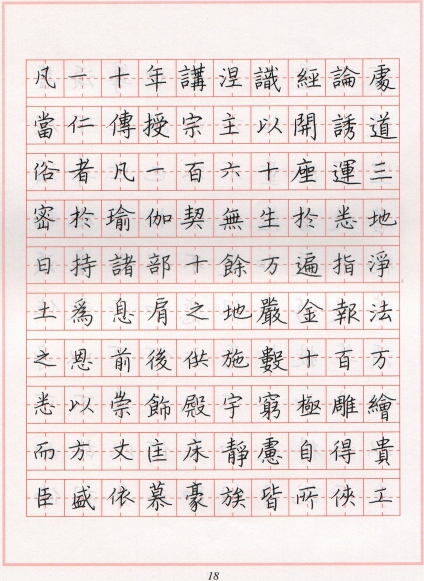 凡一十年講涅識經論處
當仁傳授宗主以開誘道
俗者凡一百六十座運三
密於瑜伽契無生於悉地
日持諸部十餘万遍指淨
土為息肩之地嚴金報法
之恩前後供施數十百万
悉以崇飾殿宇窮極雕繪
而方丈匡床靜慮自得貴
臣盛依慕豪族皆所俠工
18